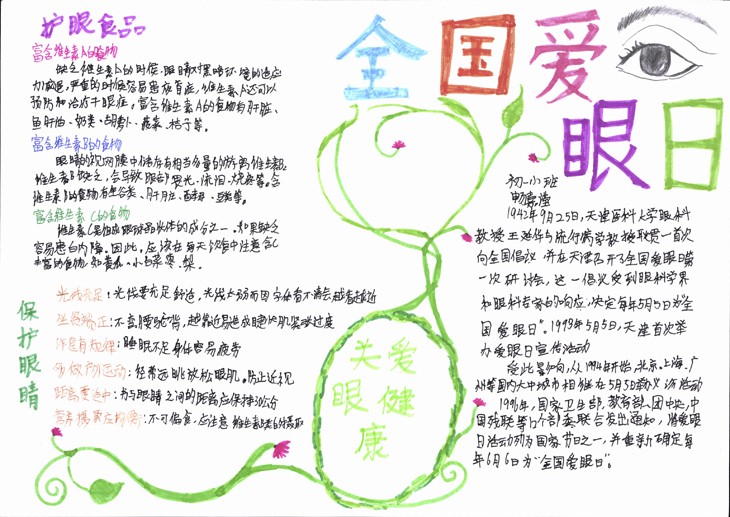 护眼食品
富含维生素A的食物
缺乏维生素A的时候,眼睛对黑暗环境的适应
力减退,严重的时候容易患夜盲症,维生素A还可以
预防和治疗干眼症,富含维生素A的食物有肝脏、
鱼肝油、奶类、胡萝卜、蔬菜、桔子等。
富含维生素B的食物
眼睛的视网膜中储存有相当分量的
维生素B缺乏,会导致眼部畏光、流泪、烧疼等。含
维生素B的食物有全谷类、肝
富含维生素C的食物
维生素C是组成眼球晶状体的成分之一。如果缺乏
容易患白内障。因此,应该在每天饮食中注意含C
丰富的食物,如 小白菜、枣、梨。
保护眼睛
光线充足:光线要充足舒适,光线太弱而因字体看不清会越看越近
坐姿端正:不要弯腰驼背,越靠近易造成睫状肌紧张过度
作息有规律:睡眠不足身体容易疲劳
多做户外运动:经常远眺放松眼肌,防止近视
距离要适中:书与眼睛之间的距离应保持30公分
营养摄取应均衡:不可偏食,应注意维生素B类的摄取
关爱眼健康
全国爱
眼日
初一小班
1942年9月25日,天津医科大学眼科
教授王延华与流行病学教授耿贯一首次
向全国倡议,并在天津召开了全国爱眼日第
一次研讨会,这一倡议受到眼科学界
和眼科专家的响应,决定每年5月5日为“全
国爱眼日”。1993年5月5日,天津首次举
办爱眼日宣传活动
受此影响,从1994年开始,北京、上海、广
州等国内大中城市相继在5月5日举办该活动
1996年,国家卫生部、教育部、团中央、中
国残联等12个部委联合发出通知,将爱眼
日活动列为国家节日之一,并重新确定每
年6月6日为“全国爱眼日”。